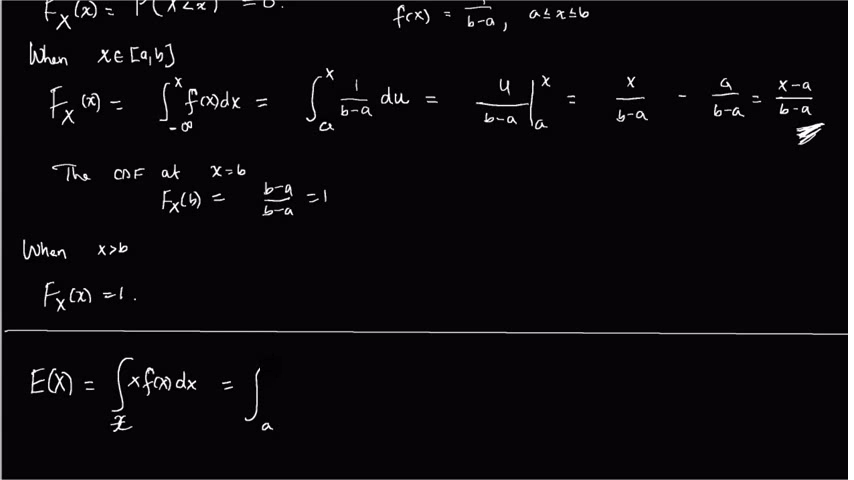 F_X(x) = P(X<x) = 0.
f(x) = 1/(b-a), a ≤ x ≤ b
When x ∈ [a,b]
F_X(x) = ∫_{-∞}^{x} f(x)dx = ∫_{a}^{x} 1/(b-a) du = u/(b-a) |_{a}^{x} = x/(b-a) - a/(b-a) = (x-a)/(b-a)
The CDF at x=b
F_X(b) = (b-a)/(b-a) = 1
When x>b
F_X(x) = 1.
E(X) = ∫_x x f(x) dx = ∫_a